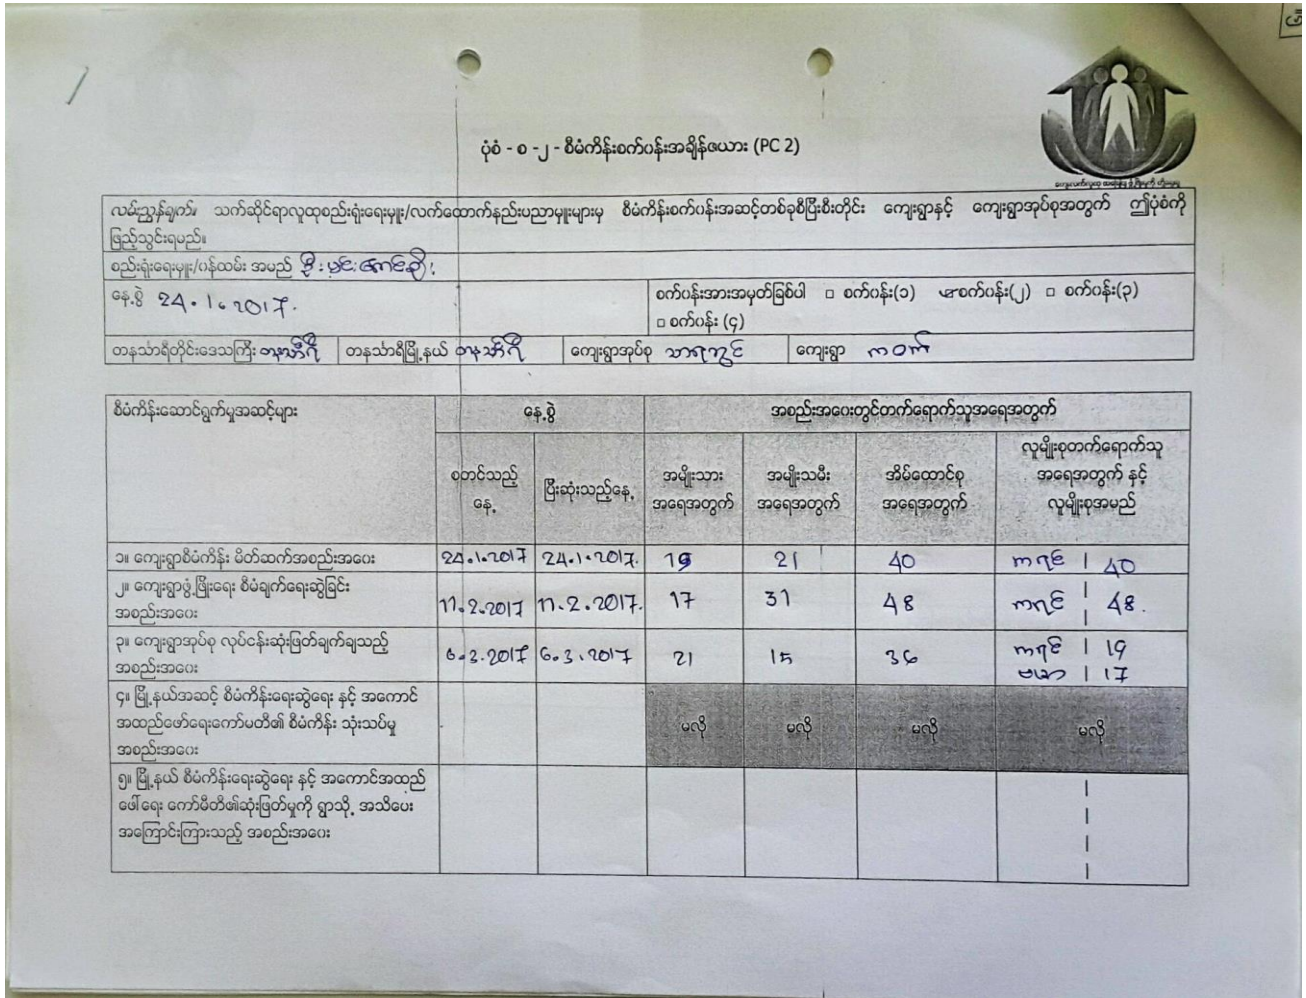 ပုံစံ - စ -၂ - စီမံကိန်းစက်ဝန်းအချိန်ဇယား (PC 2)
လမ်းညွှန်ချက်။ သက်ဆိုင်ရာလူထုစည်းရုံးရေးမှူး/လက်ထောက်နည်းပညာမှူးများမှ စီမံကိန်းစက်ဝန်းအဆင့်တစ်ခုစီပြီးစီးတိုင်း ကျေးရွာနှင့် ကျေးရွာအုပ်စုအတွက် ဤပုံစံကို
ဖြည့်သွင်းရမည်။
စည်းရုံးရေးမှူး/ဝန်ထမ်း အမည်
နေ့စွဲ 24.1.2017. စက်ဝန်းအားအမှတ်ခြစ်ပါ □ စက်ဝန်း(၁) စက်ဝန်း(၂) □ စက်ဝန်း(၃)
□ စက်ဝန်း (၄)
တနင်္သာရီတိုင်းဒေသကြီး တနင်္သာရီ တနင်္သာရီမြို့နယ် တနင်္သာရီ ကျေးရွာအုပ်စု ကျေးရွာ
စီမံကိန်းဆောင်ရွက်မှုအဆင့်များ နေ့စွဲ အစည်းအဝေးတွင်တက်ရောက်သူအရေအတွက်
စတင်သည့်
နေ့
ပြီးဆုံးသည့်နေ့
အမျိုးသား
အရေအတွက်
အမျိုးသမီး
အရေအတွက်
အိမ်ထောင်စု
အရေအတွက်
လူမျိုးစုတက်ရောက်သူ
အရေအတွက် နှင့်
လူမျိုးစုအမည်
၁။ ကျေးရွာစီမံကိန်း မိတ်ဆက်အစည်းအဝေး 24.1.2017 24.1.2017. 19 21 40 ကရင် | 40
၂။ ကျေးရွာဖွံ့ဖြိုးရေး စီမံချက်ရေးဆွဲခြင်း
အစည်းအဝေး 11.2.2017 11.2.2017. 17 31 48 ကရင် | 48.
၃။ ကျေးရွာအုပ်စု လုပ်ငန်းဆုံးဖြတ်ချက်ချသည့်
အစည်းအဝေး 6.3.2017 6.3.2017 21 15 36 ကရင် | 19
ဗမာ | 17
၄။ မြို့နယ်အဆင့် စီမံကိန်းရေးဆွဲရေး နှင့် အကောင်
အထည်ဖော်ရေးကော်မတီ၏ စီမံကိန်း သုံးသပ်မှု
အစည်းအဝေး မလို မလို မလို မလို
၅။ မြို့နယ် စီမံကိန်းရေးဆွဲရေး နှင့် အကောင်အထည်
ဖေါ်ရေး ကော်မီတီ၏ဆုံးဖြတ်မှုကို ရွာသို့ အသိပေး
အကြောင်းကြားသည့် အစည်းအဝေး